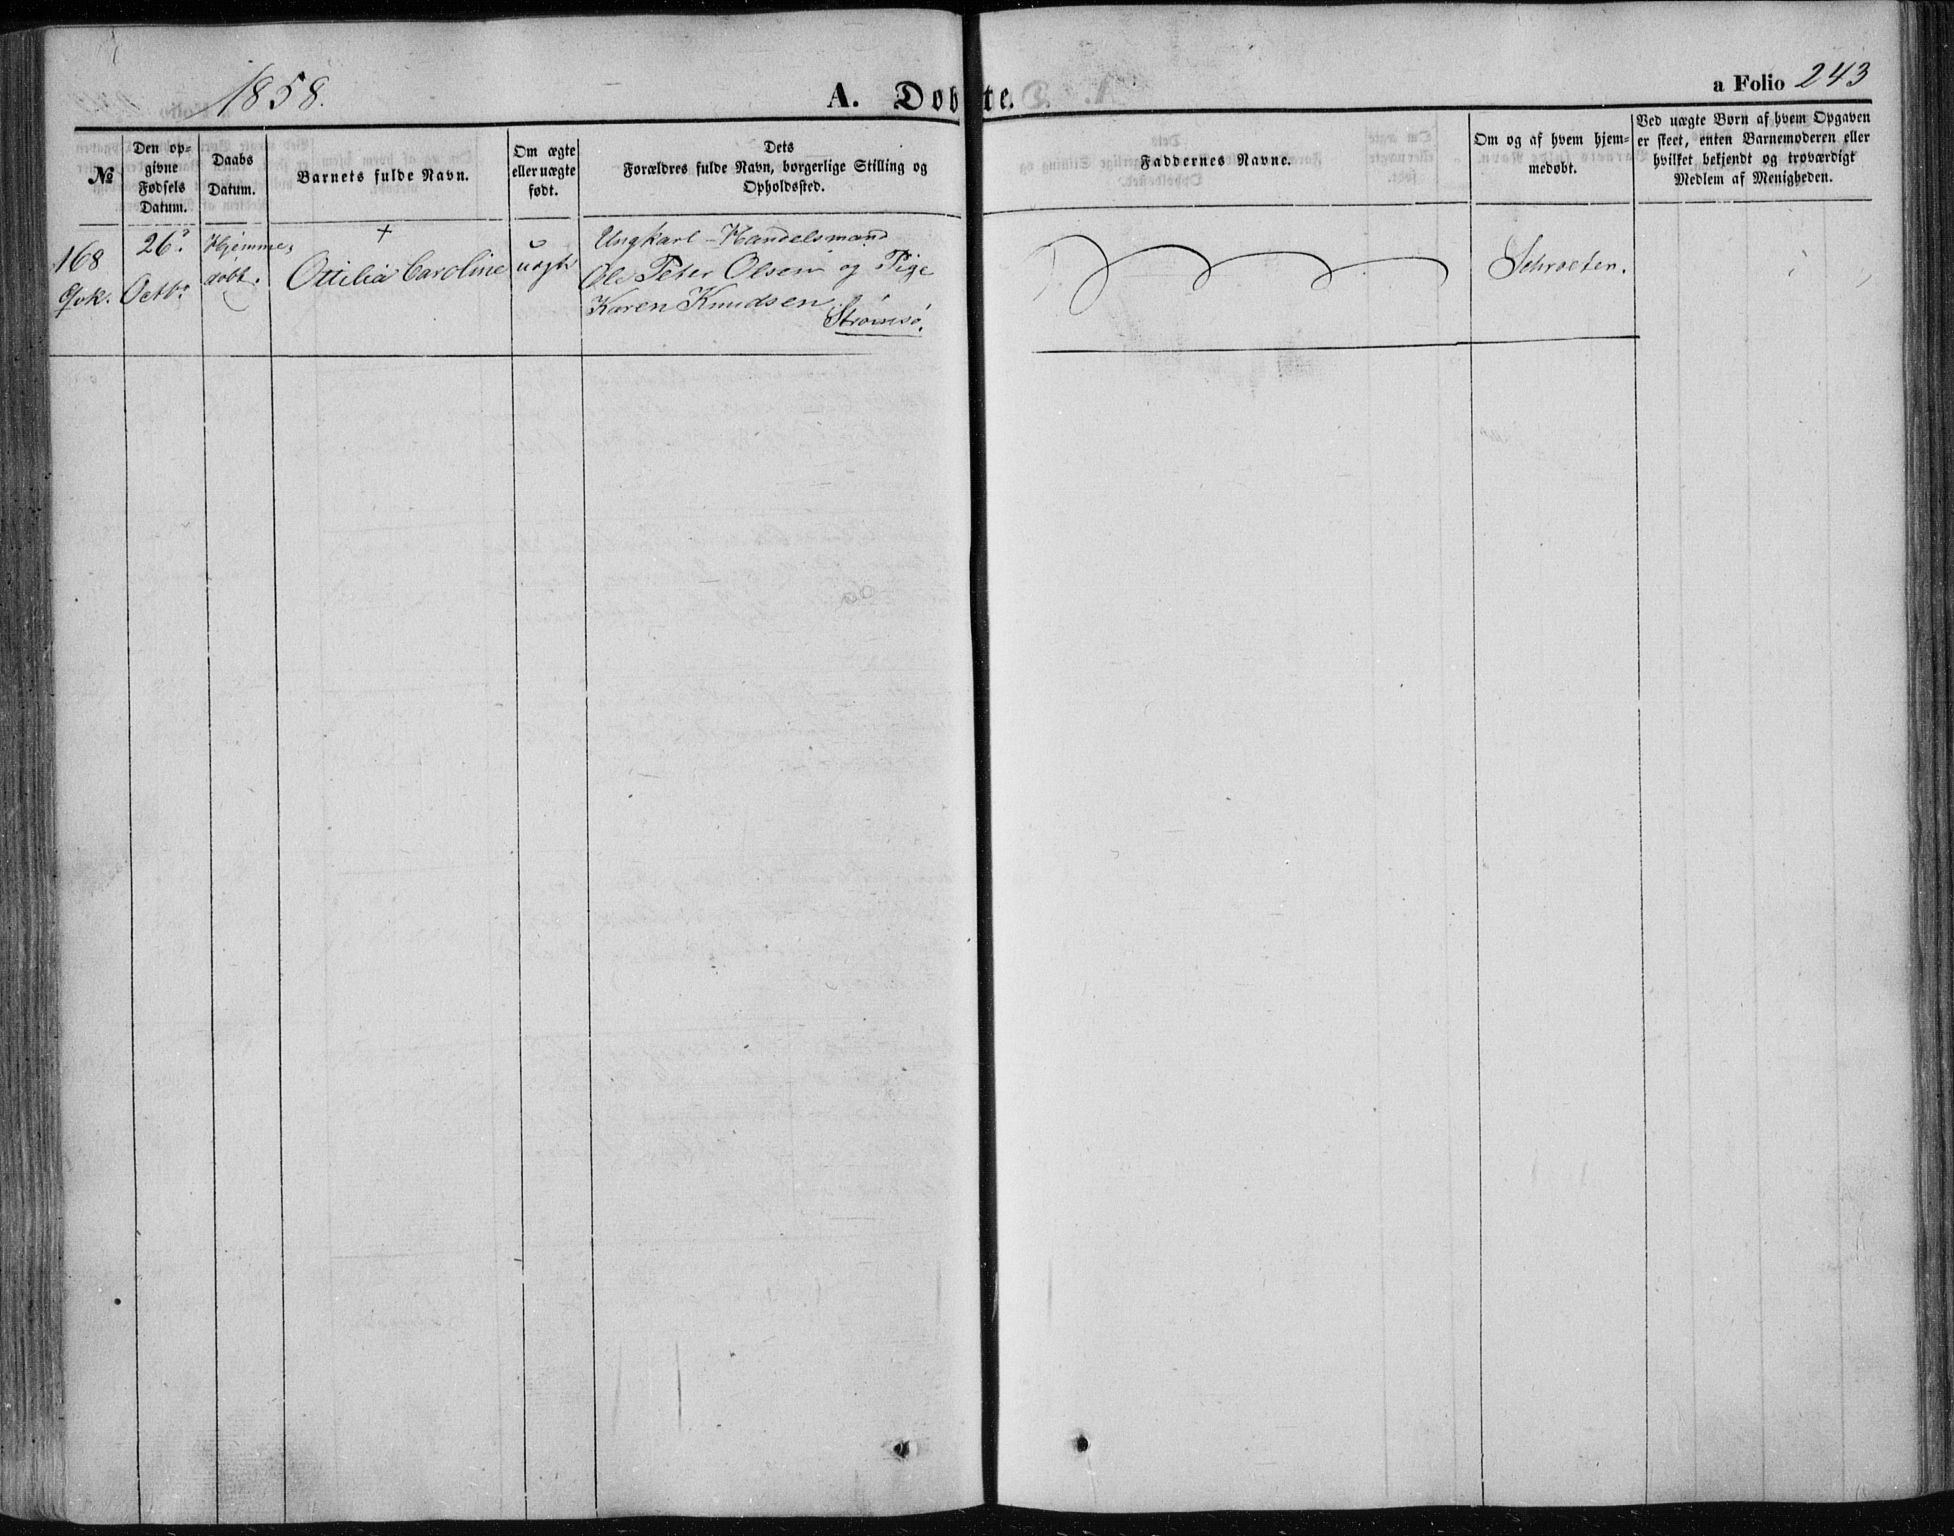 1858.
A. Døbte.
a Folio 243
№
Den op-
givne
Fødsels
Datum.
Daabs
Datum.
Barnets fulde Navn.
Om ægte
eller uægte
født.
Dets
Forældres fulde Navn, borgerlige Stilling og
Opholdssted.
Faddernes Navne.
Om og af hvem hjem-
medøbt.
Ved uægte Børn af hvem Opgaven
er skeet, enten Barnemoderen eller
hvilket bekjendt og troværdigt
Medlem af Menigheden.
168
Qvk.
26?
Octbr
Hjemme,
døbt.
+
Ottilia Caroline
uægte
Ungkarl-Handelsmand
Ole Peter Olsen og Pige
Karen Knudsen
Strømsø.
Schroeter.